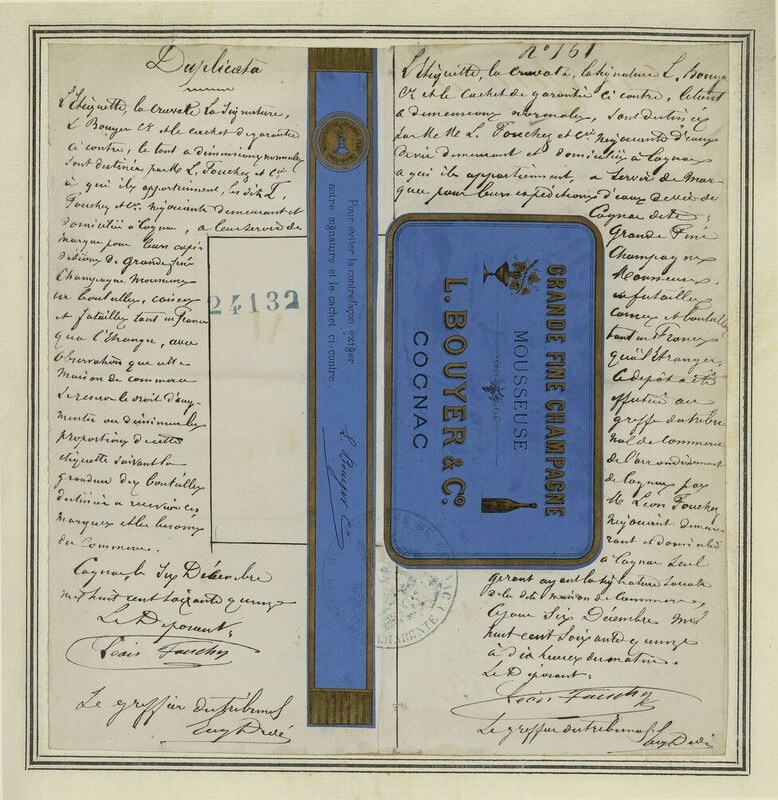 Duplicata
L'Etiquette, la cravate La Signature,
L Bouyer Cie et le cachet de garantie
ci contre, le tout a dimensions normales
sont destinés par M. L. Fouchez et Cie
à qui ils appartiennent, les dits L.
Fouchez et Cie négociants demeurant et
domiciliés à Cognac, a leur servir de
marque pour leurs expé-
ditions de grande fine
Champagne Mousseuse
en bouteilles, caisses
et futailles tant en France
qua l'Etranger, avec
Observation que cette
Maison de commerce
se reserve le droit d'aug-
menter ou diminuer les
proportions de cette
etiquette suivant la
grandeur des bouteilles
destinées a recevoir ces
marques et les besoins
du Commerce.
Cognac, le Six Décembre
mil huit cent soixante quinze
Le Déposant:
Léois Fouchez
Le greffier du tribunal
Eug Dedé
24132
Pour eviter la contrefaçon exiger
notre signature et le cachet ci-contre.
L Bouyer Co
No 161
L'Etiquette, la cravate, la signature L. Bouyer
Cie et le cachet de garantie ci contre, le tout
a dimensions normales, sont destinés
par M M L. Fouchez et Cie négociants d'eaux
de vie demeurant et domiciliés à Cognac
a qui ils appartiennent, a servir de mar-
que pour leurs expéditions d'eaux de vie de
Cognac dite:
Grande Fine
Champagne
Mousseuse,
en futailles
caisses et bouteilles
tant en France
qu'a l'Etranger,
Ce dépôt a été
effectué au
greffe du tribu-
nal de Commerce
de l'arrondissement
de Cognac par
M Léon Fouchez
négociant demeu-
rant et domicilié
à Cognac Seul
gerant ayant la signature sociale
de la dite maison de Commerce,
Ce jour Six Décembre mil
huit cent soixante quinze
à dix heures du matin.
Le Déposant:
Léois Fouchez
Le greffier du tribunal
Eug Dedé
GRANDE FINE CHAMPAGNE
MOUSSEUSE
L. BOUYER & Co.
COGNAC